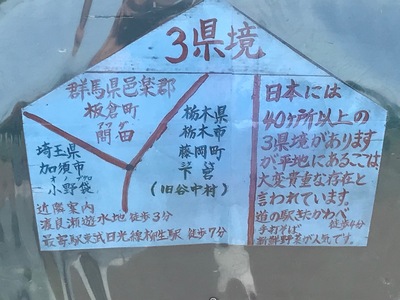 3県境
群馬県邑楽郡
板倉町
間田
栃木県
栃木市
藤岡町
下宮
(旧谷中村)
埼玉県
加須市
小野袋
近隣案内
渡良瀬遊水地 徒歩3分
最寄駅 東武日光線柳生駅 徒歩7分
日本には
40ヶ所以上の
3県境があります
が平地にあるこは、
大変貴重な存在と
言われています。
道の駅きたかわべ
徒歩4分
手打そば
新鮮野菜が人気です。